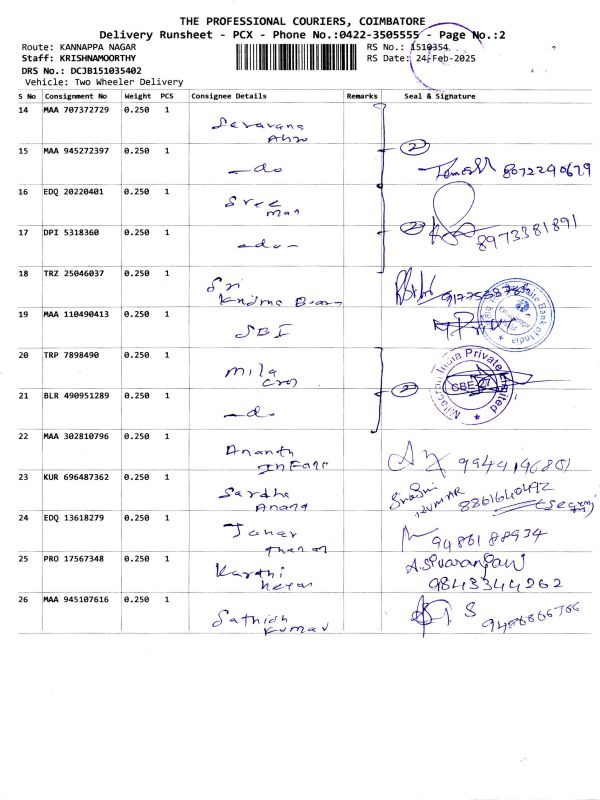 THE PROFESSIONAL COURIERS, COIMBATORE
Delivery Runsheet - PCX - Phone No.:0422-3505555 - Page No.:2
Route: KANNAPPA NAGAR RS No.: 1510354
Staff: KRISHNAMOORTHY RS Date: 24-Feb-2025
DRS No.: DCJB151035402
Vehicle: Two Wheeler Delivery
S No Consignment No Weight PCS Consignee Details Remarks Seal & Signature
14 MAA 707372729 0.250 1 Saravana
15 MAA 945272397 0.250 1 -do 2 8072290679
16 EDQ 20220401 0.250 1 Sree
man
17 DPI 5318360 0.250 1 -do- 2 8973381891
18 TRZ 25046037 0.250 1 Sri
Krishna
19 MAA 110490413 0.250 1 SBI
20 TRP 7898490 0.250 1 mila
cron
India Private
CBE-27
21 BLR 490951289 0.250 1 -do 2
22 MAA 302810796 0.250 1 Ananth
23 KUR 696487362 0.250 1 Sardha
Anand
KUMAR
24 EDQ 13618279 0.250 1 9486188934
25 PRO 17567348 0.250 1 Karthi
A. Sivaranjani
9843344262
26 MAA 945107616 0.250 1 Sathish
Kumar